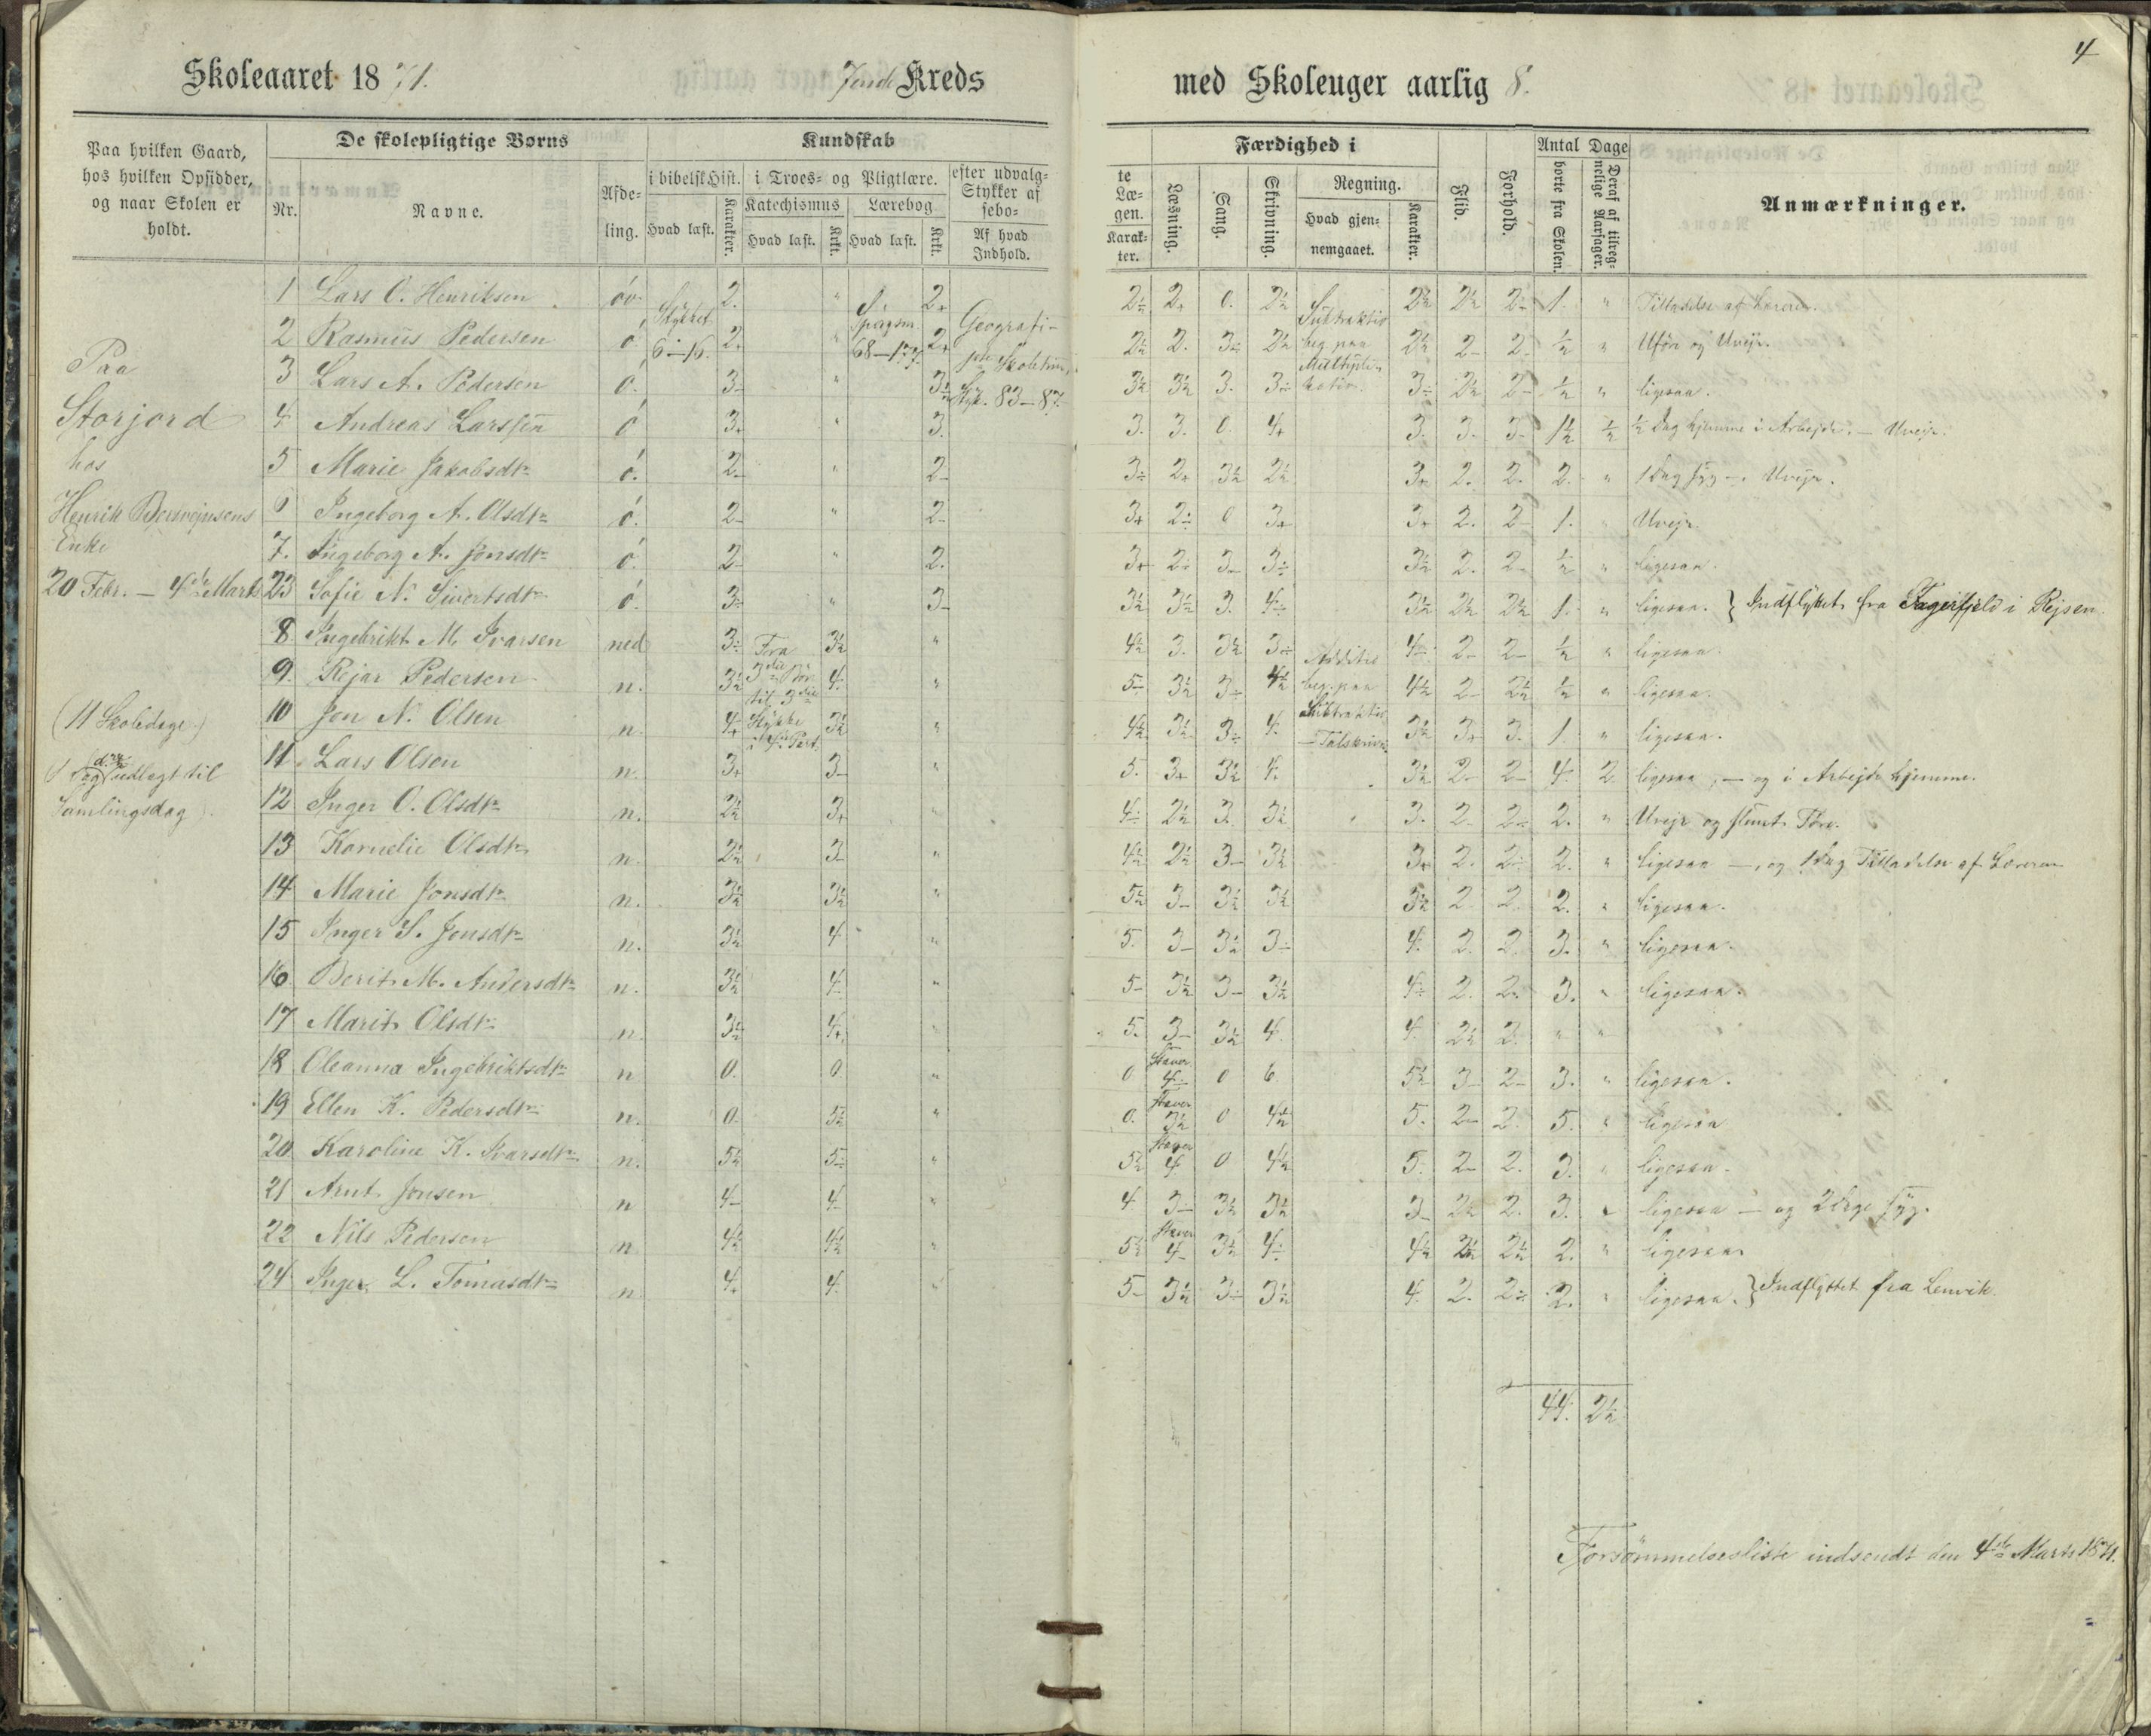 4
Skoleaaret 1871. Kreds med Skoleuger aarlig 8.
Paa hvilken Gaard, hos hvilken Opsidder, og naar Skolen er holdt.
De skolepligtige Børns
Nr. Navne. Afdeling.
Kundskab
i bibelsk Hist. i Troes- og Pligtlære. efter udvalgte Stykker af Læsebogen.
Hvad læst. Karakter. Katechismus Hvad læst. Krkt. Lærebog Hvad læst. Krkt. Af hvad Indhold. Karakter.
Færdighed i
Læsning. Sang. Skrivning. Regning. Hvad gjennemgaaet. Karakter.
Flid. Forhold. Antal Dage borte fra Skolen. Deraf af tilregnelige Aarsager.
Anmærkninger.
Paa
Storjord
hos
Henrik
Enke
20 Febr. — 4de Marts
(11 Skoledage)
udlagt til
Samlingsdag).
Stykket
6–16.
Spørgsm.
Geografi
Styk. 83–87.
Subtraktio
beg. paa
Multipli-
kation.
Fra
til 3die
Stykke
Additio
beg. paa
Subtraktio
1 Lars O. Henriksen 2. 2+ 2÷ 2+ 0. 2½ 2½ 2½ 2- 1. " Tilladelse af Læreren.
2 Rasmus Pedersen ó 2+ " 2+ 2½ 2. 3÷ 2½ 2½ 2- 2. ½ " Uføre og Uvejr.
3 Lars A. Pedersen ó. 3- " 3½ 3½ 3½ 3. 3÷ 3÷ 2½ 2- ½ " ligesaa.
4 Andreas Larssen ó 3+ " 3. 3. 3. 0. 4+ 3. 3. 3- 1½ ½ ½ Dag hjemme i Arbejde. — Uvejr.
5 Marie Jakobsdtr ó. 2- " 2- 3÷ 2+ 3½ 2½ 3+ 2. 2. 2. " 1 Dag syg — Uvejr.
6 Ingeborg A. Olsdtr ó. 2- " 2- 3+ 2÷ 0 3+ 3+ 2. 2- 1. " Uvejr.
7. Ingeborg A. Jonsdtr ó. 2- " 2. 3+ 2÷ 3- 3÷ 3½ 2. 2- ½ " ligesaa.
23 Sofie N. Sivertsdtr ó. 3÷ " 3- 3½ 3½ 3. 4÷ 3½ 2½ 2½ 1. " ligesaa. } Indflyttet fra i Rejsen.
8 Ingebrikt M. Ivarsen ned 3÷ 3½ " 4½ 3. 3½ 3÷ 4÷ 2- 2- ½ " ligesaa.
9. Rejar Pedersen n. 3½ 4. " 5- 3½ 3÷ 4½ 4½ 2- 2½ ½ " ligesaa.
10 Jon N. Olsen n. 4+ 3½ " 4½ 3½ 3÷ 4. 3½ 3+ 3. 1. " ligesaa.
11. Lars Olsen n. 3+ 3- " 5. 3+ 3½ 4. 3½ 2- 2- 4. 2 ligesaa, — og i Arbejde hjemme.
12 Inger O. Olsdtr n. 2½ 3+ " 4÷ 2½ 3. 3½ 3. 2- 2÷ 2. " Uvejr og slemt Føre.
13 Kornelie Olsdtr n. 2½ 3- " 4½ 2½ 3- 3½ 3+ 2. 2÷ 2. " ligesaa —, og 1 Dag Tilladelse af Læreren
14 Marie Jonsdtr n. 3½ 3½ " 5½ 3- 3½ 3½ 3½ 2. 2. 2. " ligesaa.
15 Inger S. Jonsdtr n. 3½ 4 " 5. 3- 3½ 3÷ 4. 2. 2. 3. " ligesaa.
16 Berit M. Andersdtr n. 3½ 4÷ " 5- 3½ 3- 3½ 4÷ 2. 2. 3. " ligesaa.
17 Marit Olsdtr n. 3½ 4+ " 5. 3- 3½ 4. 4. 2½ 2. " "
18 Oleanna Ingebriktsdtr n 0. 0. " 0 Staver 4÷ 0 6. 5½ 3- 2- 3. " ligesaa.
19 Ellen K. Pedersdtr n. 0. 5½ " 0. Staver 3½ 0 4½ 5. 2- 2. 5. " ligesaa
20 Karoline K. Ivarsdtr n. 5½ 5÷ " 5½ Staver 4 0 4½ 5. 2- 2. 3. " ligesaa.
21 Arnt Jonsen n 4- 4- " 4 3- 3½ 3½ 3- 2½ 2. 3. " ligesaa — og 2 Dage syg.
22 Nils Pedersen n 4½ 4½ " 5½ Staver 4- 3½ 4÷ 4½ 2½ 2½ 2. " ligesaa
24 Inger L. Tomasdtr n. 4+ 4. " 5- 3½ 3÷ 3½ 4. 2. 2÷ 2. " ligesaa. } Indflyttet fra Lenvik.
44. 2½
Forsømmelsesliste indsendt den 4de Marts 1871.